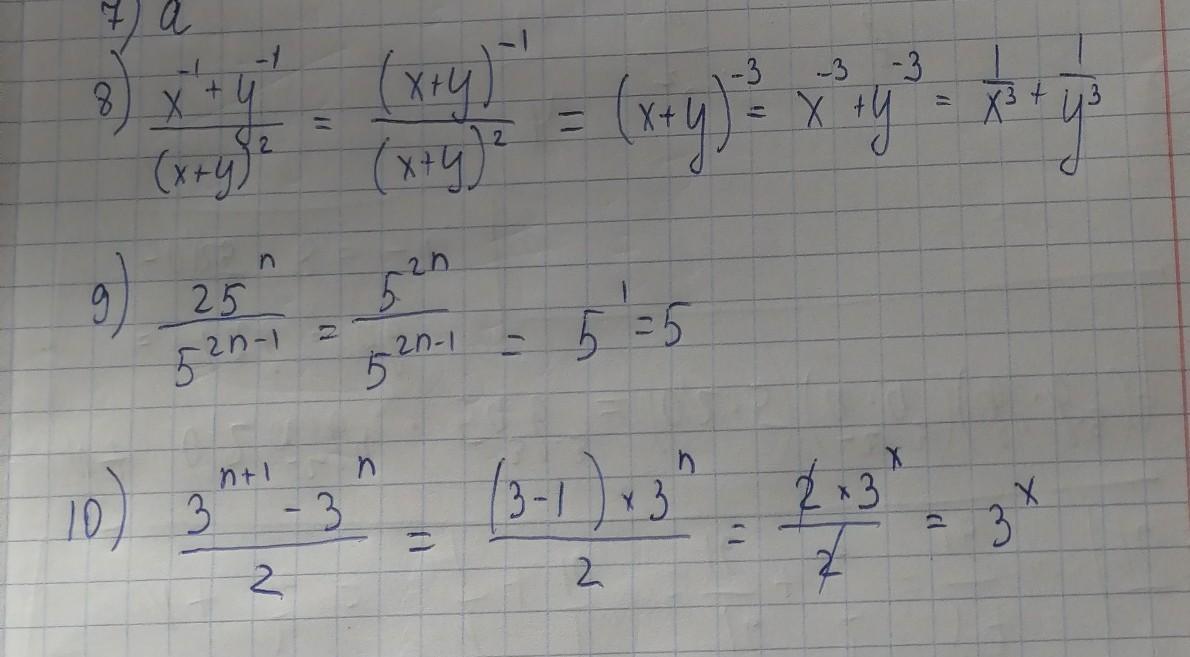 7) a
8) (x⁻¹ + y⁻¹)/(x+y)² = (x+y)⁻¹/(x+y)² = (x+y)⁻³ = x⁻³ + y⁻³ = 1/x³ + 1/y³
9) 25ⁿ/5²ⁿ⁻¹ = 5²ⁿ/5²ⁿ⁻¹ = 5¹ = 5
10) (3ⁿ⁺¹ - 3ⁿ)/2 = ((3-1) × 3ⁿ)/2 = (2 × 3ˣ)/2 = 3ˣ